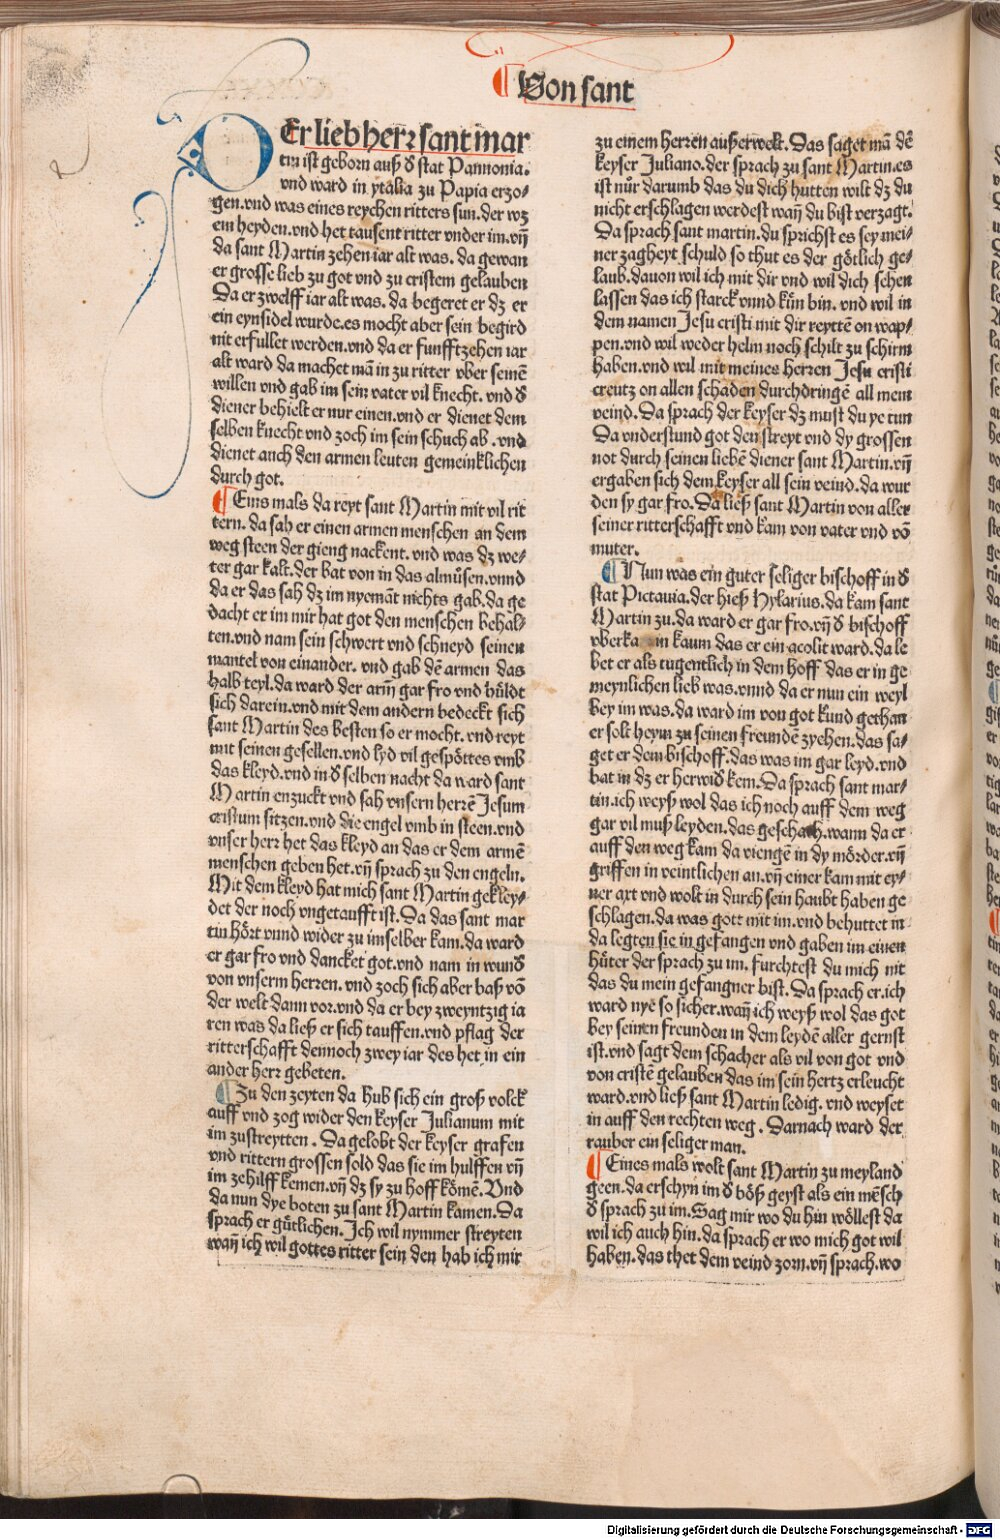 ¶ Von sant
DEr lieb herr sant mar
tin ist geborn auß d̕ stat Pannonia.
vnd ward in ytalia zu Papia erzo⸗
gen.vnd was eines reychen ritters sun.der wz
ein heyden.vnd het tausent ritter vnder im.vñ
da sant Martin zehen iar alt was. da gewan
er grosse lieb zu got vnd zu cristem gelauben
Da er zwelff iar alt was. da begeret er dz er
ein eynsidel wurde.es mocht aber sein begird
nit erfullet werden.vnd da er funfftzehen iar
alt ward da machet mā in zu ritter vber seinē
willen vnd gab im sein vater vil knecht. vnd d̕
diener behielt er nur einen.vnd er dienet dem
selben knecht vnd zoch im sein schuch ab .vnd
dienet auch den armen leuten gemeinklichen
durch got.
¶ Eins mals da reyt sant Martin mit vil rit
tern. da sah er einen armen menschen an dem
weg steen der gieng nackent. vnd was dz we⸗
ter gar kalt.der bat von in das almůsen.vnnd
da er das sah dz im nyemāt nichts gab.da ge
dacht er im mir hat got den menschen behal⸗
ten.vnd nam sein schwert vnd schneyd seinen
mantel von einander. vnd gab dē armen das
halb teyl.da ward der arm̄ gar fro vnd hůldt
sich darein.vnd mit dem andern bedeckt sich
sant Martin des besten so er mocht.vnd reyt
mit seinen gesellen.vnd lyd vil gespöttes vmb
das kleyd.vnd in d̕ selben nacht da ward sant
Martin enzuckt vnd sah vnsern herrē Jesum
cristum sitzen.vnd die engel vmb in steen.vnd
vnser herr het das kleyd an das er dem armē
menschen geben het.vñ sprach zu den engeln.
Mit dem kleyd hat mich sant Martin gekley⸗
det der noch vngetaufft ist. Da das sant mar
tin hört vnnd wider zu imselber kam.da ward
er gar fro vnd dancket got.vnd nam in wund̕
von vnserm herren. vnd zoch sich aber baß vō
der welt dann vor.vnd da er bey zweyntzig ia
ren was da ließ er sich tauffen.vnd pflag der
ritterschafft dennoch zwey iar des het in ein
ander herr gebeten.
¶ Zu den zeyten da hub sich ein groß volck
auff vnd zog wider den keyser Julianum mit
im zustreytten . Da gelobt der keyser grafen
vnd rittern grossen sold das sie im hulffen vñ
im zehilff kemen.vñ dz sy zu hoff kömē. Vnd
da nun dye boten zu sant Martin kamen. Da
sprach er gůtlichen. Ich wil nymmer streyten
wañ ich wil gottes ritter sein den hab ich mir
zu einem herren außerwelt. Das saget mā dē
keyser Juliano.der sprach zu sant Martin.es
ist nůr darumb das du dich hutten wilt dz du
nicht erschlagen werdest wañ du bist verzagt.
Da sprach sant martin.du sprichst es sey mei⸗
ner zagheyt schuld so thut es der götlich ge⸗
laub.dauon wil ich mit dir vnd wil dich sehen
lassen das ich starck vnnd kůn bin. vnd wil in
dem namen Jesu cristi mit dir reyttē on wap⸗
pen.vnd wil weder helm noch schilt zu schirm
haben.vnd wil mit meines herren Jesu cristi
creutz on allen schaden durchdringē all mein
veind. Da sprach der keyser dz must du ye tun
Da vnderstund got den streyt vnd dy grossen
not durch seinen liebē diener sant Martin.vñ
ergaben sich dem keyser all sein veind.da wur
den sy gar fro. Da ließ sant Martin von aller
seiner ritterschafft vnd kam von vater vnd vō
muter.
¶ Nun was ein guter seliger bischoff in d̕
stat Pictauia.der hieß Hylarius.da kam sant
Martin zu.da ward er gar fro.vñ d̕ bischoff
vberka in kaum das er ein acolit ward.da le
bet er als tugentlich in dem hoff das er in ge
meynlichen lieb was.vnnd da er nun ein weyl
bey im was.da ward im von got kund gethan
er solt heym zu seinen freundē zyehen.das sa⸗
get er dem bischoff.das was im gar leyd.vnd
bat in dz er herwid̕ kem.Da sprach sant mar⸗
tin.ich weyß wol das ich noch auff dem weg
gar vil muß leyden.das geschach.wann da er
auff den weg kam da viengē in dy mörder.vñ
griffen in veintlichen an.vñ einer kam mit ey⸗
ner axt vnd wolt in durch sein haubt haben ge
schlagen.da was gott mit im.vnd behuttet in
da legten sie in gefangen vnd gaben im einen
hůter der sprach zu im. furchtest du mich nit
das du mein gefangner bist. Da sprach er.ich
ward nye so sicher.wañ ich weyß wol das got
bey seinen freunden in dem leydē aller gernst
ist.vnd sagt dem schacher als vil von got vnd
von cristē gelauben das im sein hertz erleucht
ward.vnd ließ sant Martin ledig. vnd weyset
in auff den rechten weg . Darnach ward der
rauber ein seliger man.
¶ Eines mals wolt sant Martin zu meyland
geen.da erschyn im d̕ böß geyst als ein mēsch
d̕ sprach zu im. Sag mir wo du hin wöllest da
wil ich auch hin.da sprach er wo mich got wil
haben.das thet dem veind zorn.vñ sprach.wo
Digitalisierung gefördert durch die Deutsche Forschungsgemeinschaft - DFG